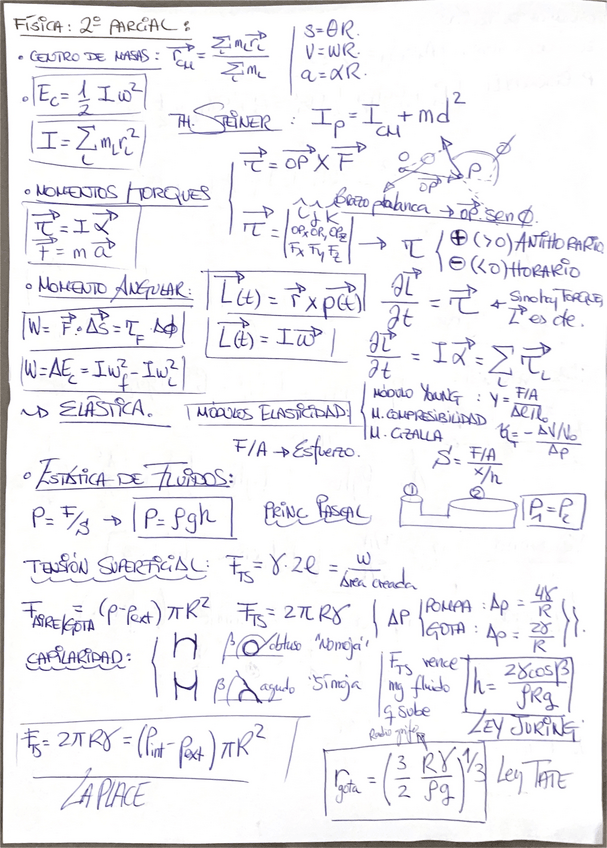 FÍSICA: 2º PARCIAL:
• CENTRO DE MASAS: r⃗_CM = Σ_i m_i r⃗_i / Σ m_i
s = θR.
v = ωR.
a = αR.
• E_C = 1/2 I ω²
I = Σ_i m_i r_i²
TH. STEINER : I_P = I_CM + md²
τ⃗ = OP⃗ × F⃗
OP⃗ P
brazo palanca → OP⃗ sen φ.
• MOMENTOS / TORQUES
τ⃗ = I α⃗
F⃗ = m a⃗
τ⃗ = | i j k
OPx OPy OPz
Fx Fy Fz | → τ { ⊕ (>0) ANTIHORARIO
⊖ (<0) HORARIO
• MOMENTO ANGULAR: L⃗(t) = r⃗ × p⃗(t) ∂L⃗/∂t = τ⃗ ← Si no hay TORQUE, L⃗ es cte.
W = F⃗ · Δs⃗ = τ_F · Δϕ L⃗(t) = I ω⃗ ∂L⃗/∂t = I α⃗ = Σ_i τ⃗_i
W = ΔE_C = I ω_f² - I ω_i²
~> ELÁSTICA. MÓDULOS ELASTICIDAD:
MÓDULO YOUNG : Y = F/A / Δl/l₀
M. COMPRESIBILIDAD = - ΔV/V₀ / Δp
M. CIZALLA S = F/A / x/h
F/A → Esfuerzo.
• ESTÁTICA DE FLUIDOS:
P = F/S → P = ρgh PRINC PASCAL ① ② P₁ = P₂
TENSIÓN SUPERFICIAL: F_TS = γ · 2l = W / Área creada
F_AIRE/GOTA = (p - p_ext) πR² F_TS = 2πRγ { ΔP { POMPA : Δp = 4γ/R
GOTA : Δp = 2γ/R }}.
CAPILARIDAD: β obtuso "No moja"
β agudo "Sí moja
F_TS vence
mg fluido
y sube
h = 2γcosβ / ρRg
LEY JURING
F_TS = 2πRγ = (p_int - p_ext) πR²
LAPLACE
r_gota = (3/2 Rγ/ρg)^1/3 Ley TATE